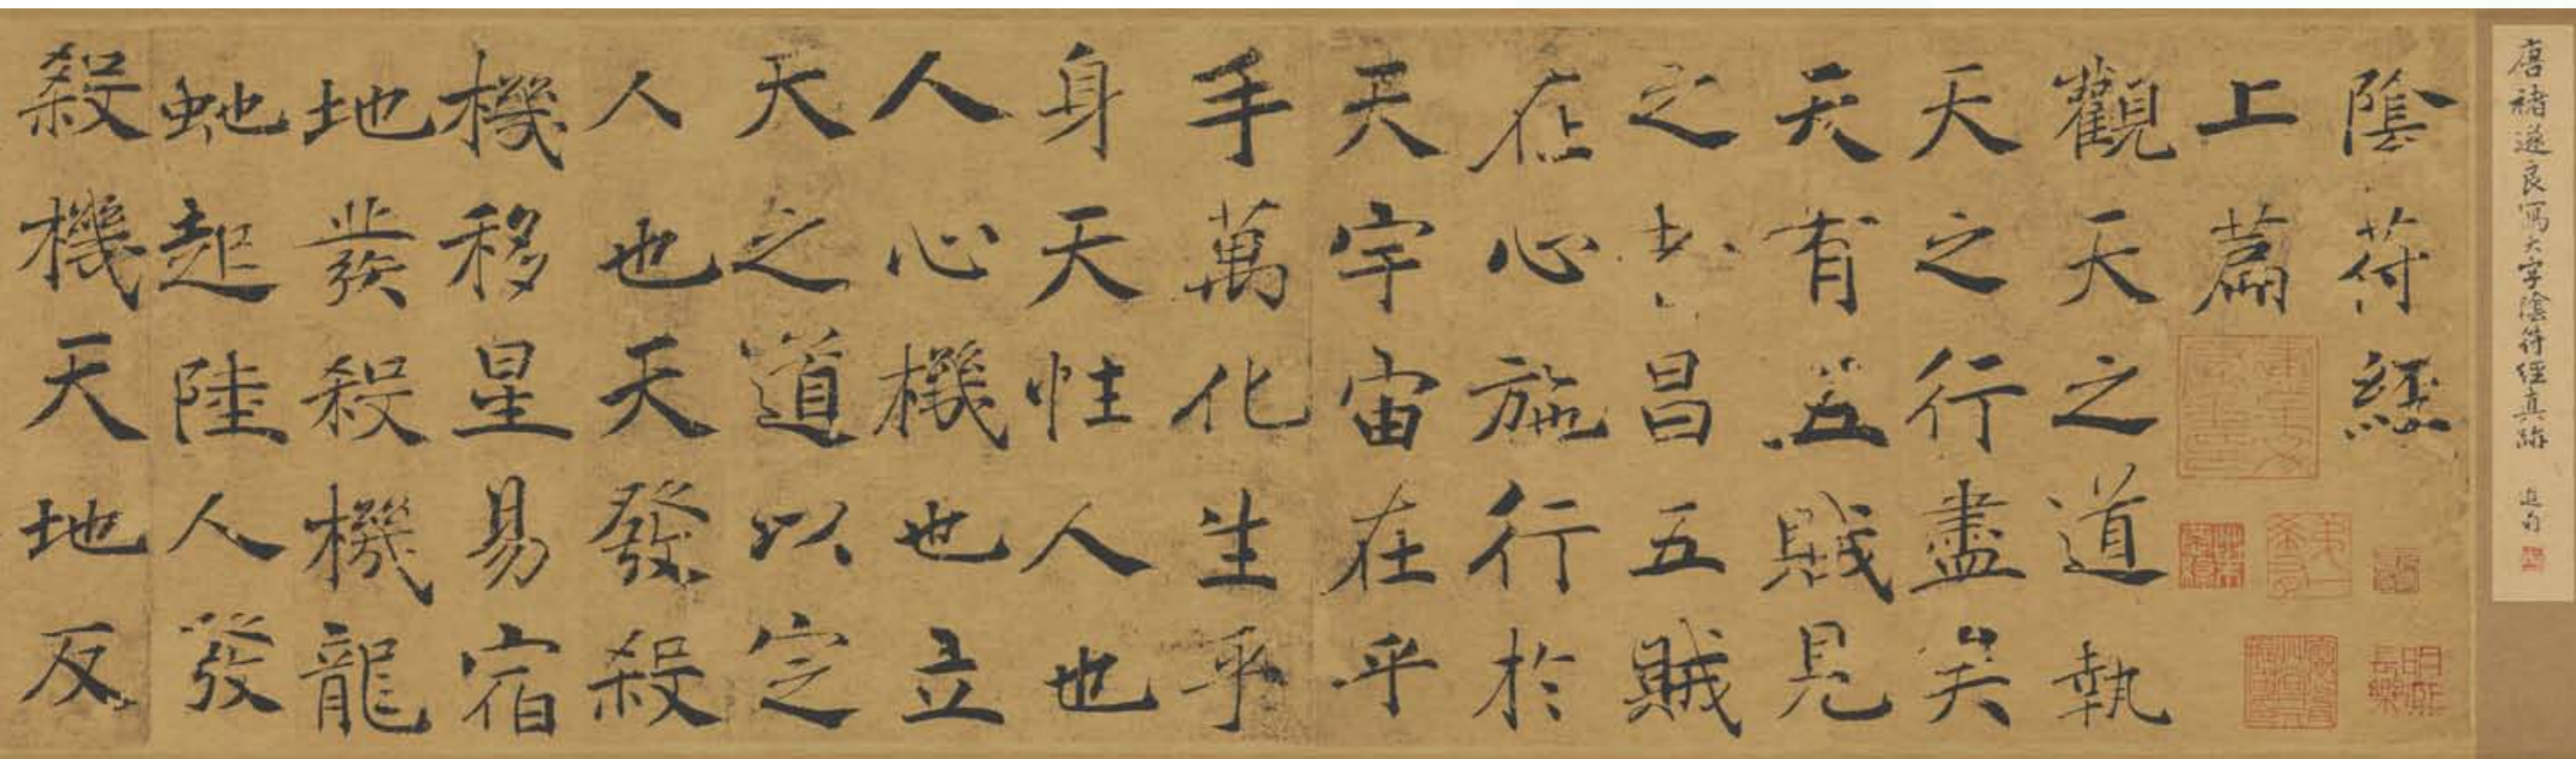 唐褚遂良寫大字陰符經真跡
陰符經
上篇
觀天之道執
天之行盡矣
天有五賊見
之者昌五賊
在心施行於
天宇宙在乎
手萬化生乎
身天性人也
人心機也立
天之道以定
人也天發殺
機移星易宿
地發殺機龍
虵起陸人發
殺機天地反